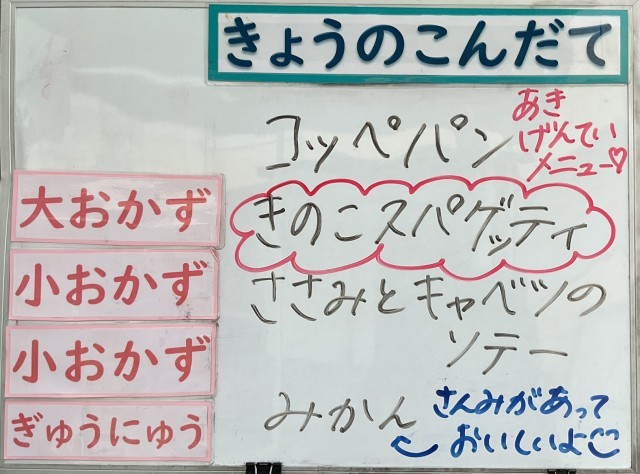 きょうのこんだて
コッペパン
あき
げんてい
メニュー♡
大おかず
きのこスパゲッティ
小おかず
ささみとキャベツの
ソテー
小おかず
みかん
さんみがあって
おいしいよ
ぎゅうにゅう